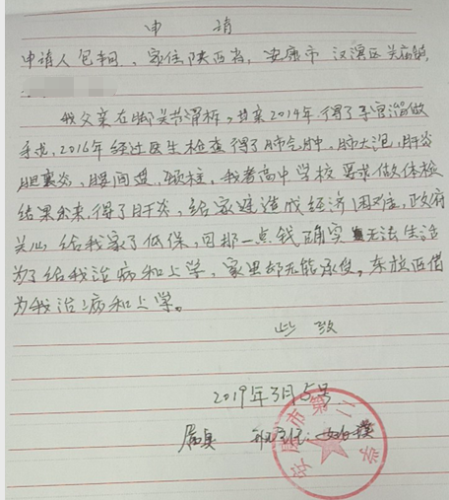 申 请
申请人包 ，家住陕西省，安康市 汉滨区关庙镇，
我父亲在脚关节滑坏，母亲2014年得了子宫 做
手术，2016年经过医生检查得了肺气肿，肺大泡，肝炎
胆囊炎，腰间盘，颈柱，我者高中学校要求做体检
结果出来，得了肝炎，给家建造成经济困难，政府
关心给我家了低保，因那一点钱确实无法生活
为了给我治病和上学，家里却无能承受，东拉西借
为我治病和上学。
此致
2019年3月5号
属真 班主任：
安康市第二 学